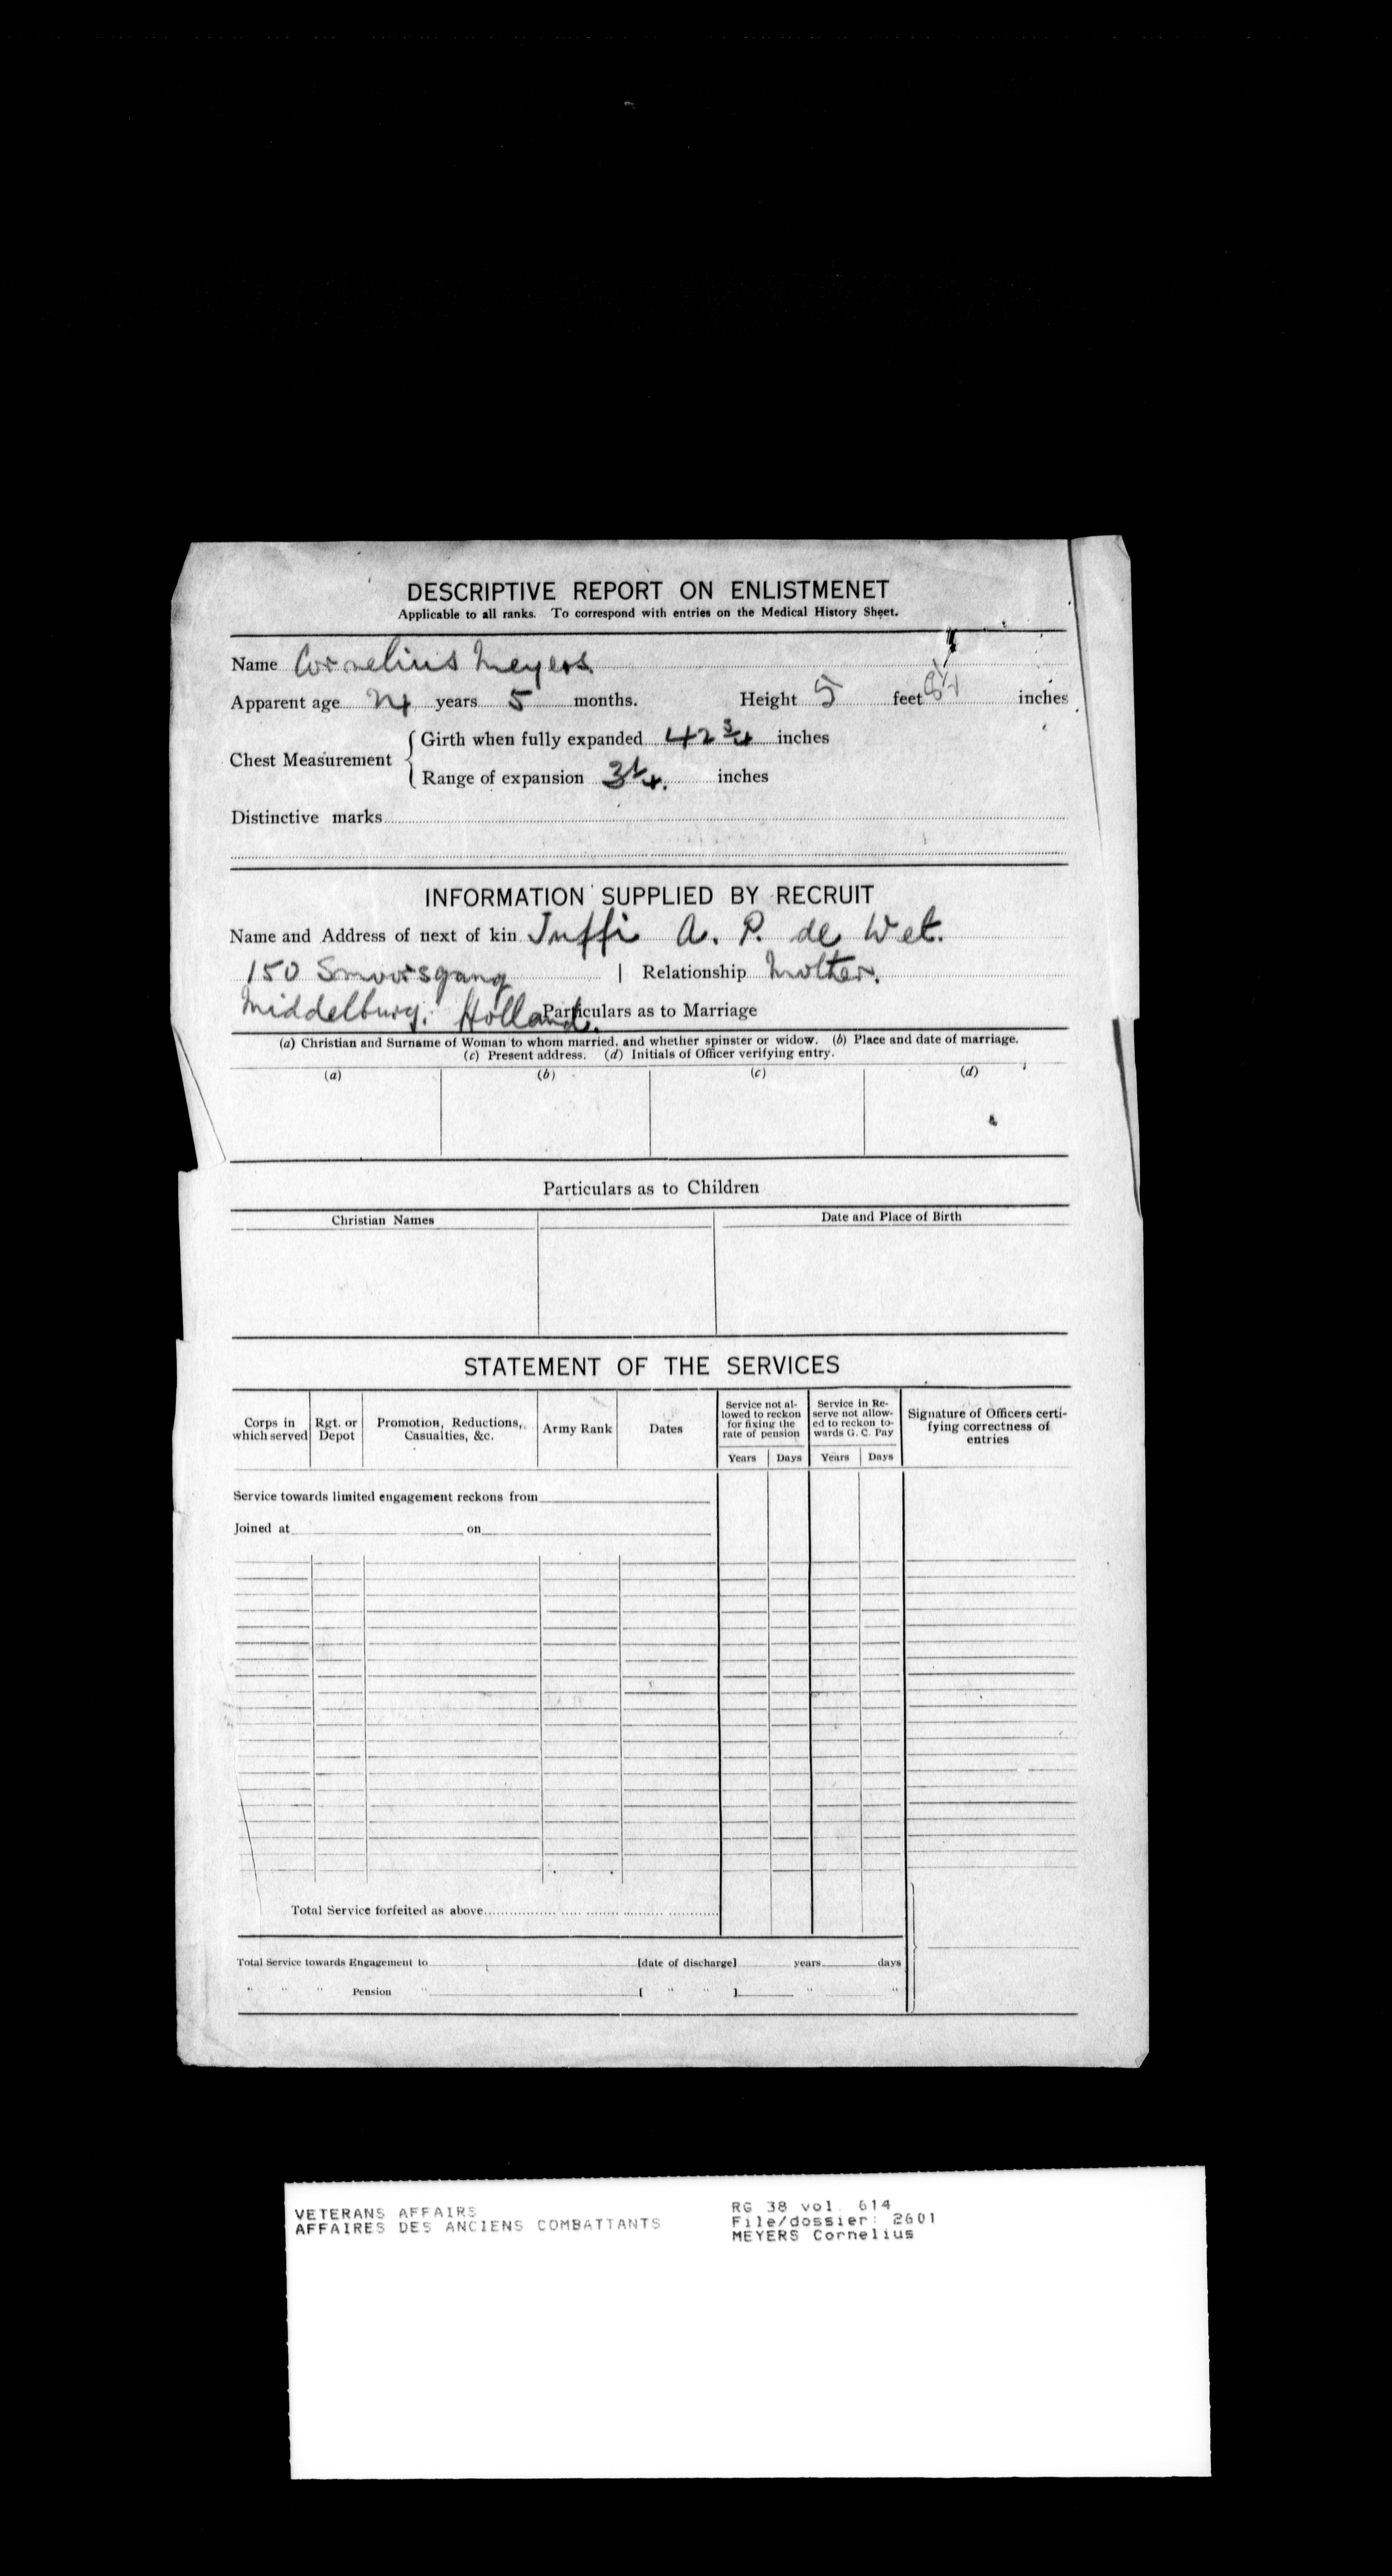 DESCRIPTIVE REPORT ON ENLISTMENET
Applicable to all ranks. To correspond with entries on the Medical History Sheet.
Name Cornelius Meyers
Apparent age 24 years 5 months. Height 5 feet inches
Chest Measurement
Girth when fully expanded 42 3/4 inches
Range of expansion inches
Distinctive marks
INFORMATION SUPPLIED BY RECRUIT
Name and Address of next of kin Juffr A. P. de Wet.
150 Smoorsgang | Relationship Mother.
Middelburg. Holland. Particulars as to Marriage
(a) Christian and Surname of Woman to whom married, and whether spinster or widow. (b) Place and date of marriage.
(c) Present address. (d) Initials of Officer verifying entry.
(a) (b) (c) (d)
Particulars as to Children
Christian Names Date and Place of Birth
STATEMENT OF THE SERVICES
Corps in which served
Rgt. or Depot
Promotion, Reductions, Casualties, &c.
Army Rank
Dates
Service not allowed to reckon for fixing the rate of pension
Service in Reserve not allowed to reckon towards G. C. Pay
Signature of Officers certifying correctness of entries
Years Days Years Days
Service towards limited engagement reckons from
Joined at on
Total Service forfeited as above
Total Service towards Engagement to [date of discharge] years days
" " " Pension " [ " " ] " "
VETERANS AFFAIRS
AFFAIRES DES ANCIENS COMBATTANTS
RG 38 vol. 614
File/dossier: 2601
MEYERS Cornelius